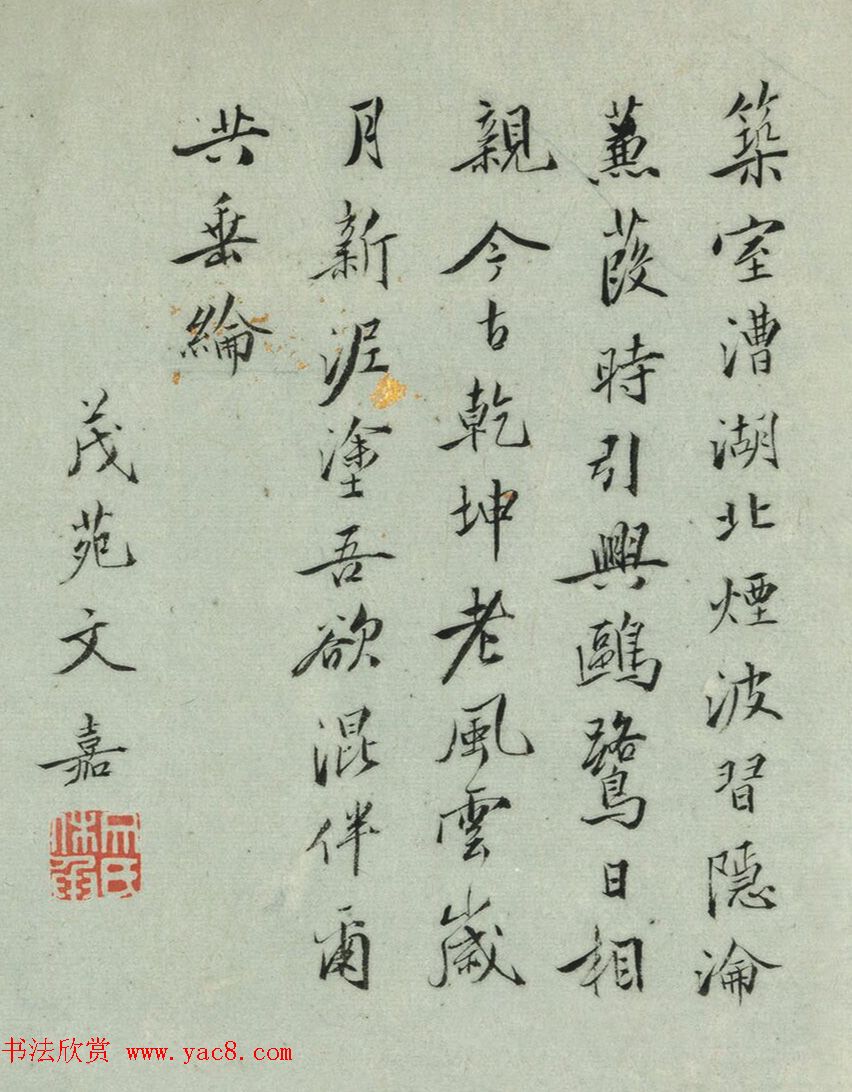 築室漕湖北煙波習隱淪
蒹葭時引興鷗鷺日相
親今古乾坤老風雲歲
月新泥塗吾欲混伴爾
共垂綸
茂苑文嘉
书法欣赏 www.yac8.com